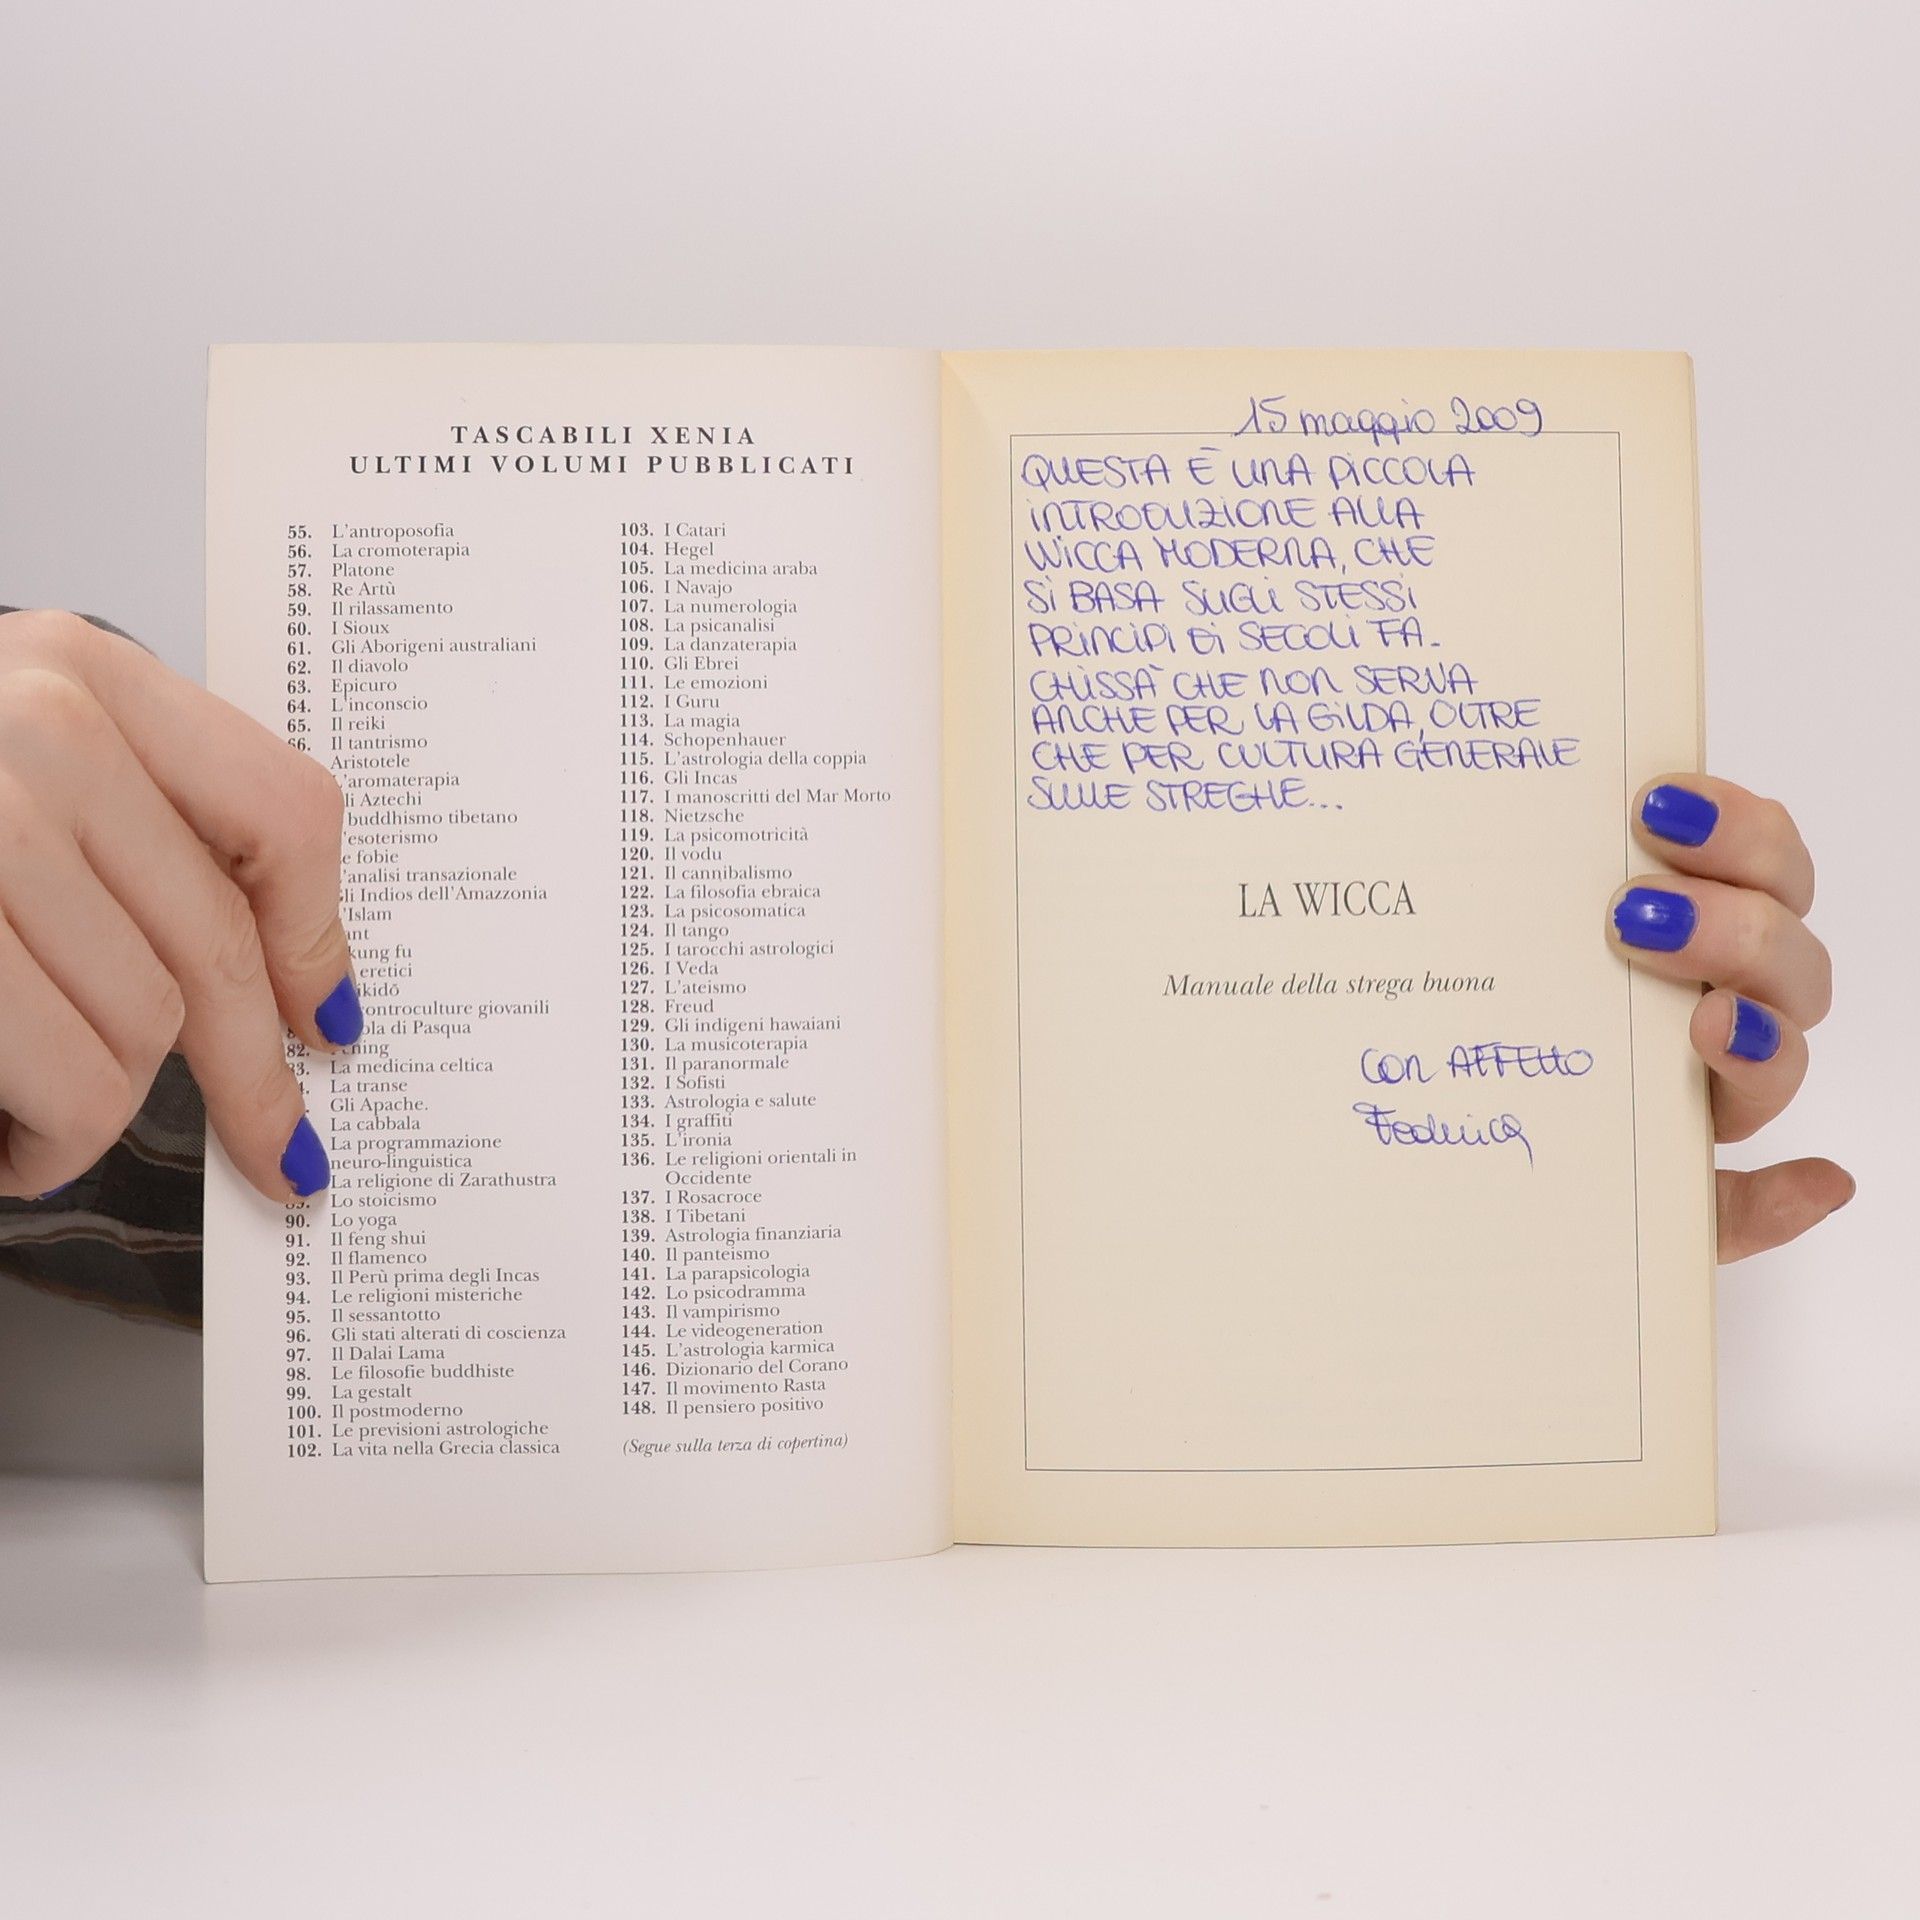 TASCABILI XENIA
ULTIMI VOLUMI PUBBLICATI
55. L'antroposofia
56. La cromoterapia
57. Platone
58. Re Artù
59. Il rilassamento
60. I Sioux
61. Gli Aborigeni australiani
62. Il diavolo
63. Epicuro
64. L'inconscio
65. Il reiki
66. Il tantrismo
Aristotele
L'aromaterapia
Gli Aztechi
buddhismo tibetano
L'esoterismo
Le fobie
L'analisi transazionale
Gli Indios dell'Amazzonia
L'Islam
kung fu
eretici
controculture giovanili
di Pasqua
82.
83. La medicina celtica
La transe
Gli Apache.
La cabbala
La programmazione
neuro-linguistica
La religione di Zarathustra
89. Lo stoicismo
90. Lo yoga
91. Il feng shui
92. Il flamenco
93. Il Perù prima degli Incas
94. Le religioni misteriche
95. Il sessantotto
96. Gli stati alterati di coscienza
97. Il Dalai Lama
98. Le filosofie buddhiste
99. La gestalt
100. Il postmoderno
101. Le previsioni astrologiche
102. La vita nella Grecia classica
103. I Catari
104. Hegel
105. La medicina araba
106. I Navajo
107. La numerologia
108. La psicanalisi
109. La danzaterapia
110. Gli Ebrei
111. Le emozioni
112. I Guru
113. La magia
114. Schopenhauer
115. L'astrologia della coppia
116. Gli Incas
117. I manoscritti del Mar Morto
118. Nietzsche
119. La psicomotricità
120. Il vodu
121. Il cannibalismo
122. La filosofia ebraica
123. La psicosomatica
124. Il tango
125. I tarocchi astrologici
126. I Veda
127. L'ateismo
128. Freud
129. Gli indigeni hawaiani
130. La musicoterapia
131. Il paranormale
132. I Sofisti
133. Astrologia e salute
134. I graffiti
135. L'ironia
136. Le religioni orientali in
Occidente
137. I Rosacroce
138. I Tibetani
139. Astrologia finanziaria
140. Il panteismo
141. La parapsicologia
142. Lo psicodramma
143. Il vampirismo
144. Le videogeneration
145. L'astrologia karmica
146. Dizionario del Corano
147. Il movimento Rasta
148. Il pensiero positivo
(Segue sulla terza di copertina)
15 maggio 2009
QUESTA È UNA PICCOLA
INTRODUZIONE ALLA
WICCA MODERNA, CHE
SI BASA SUGLI STESSI
PRINCIPI DI SECOLI FA.
CHISSÀ CHE NON SERVA
ANCHE PER LA GILDA, OLTRE
CHE PER CULTURA GENERALE
SULLE STREGHE...
LA WICCA
Manuale della strega buona
CON AFFETTO
Federica